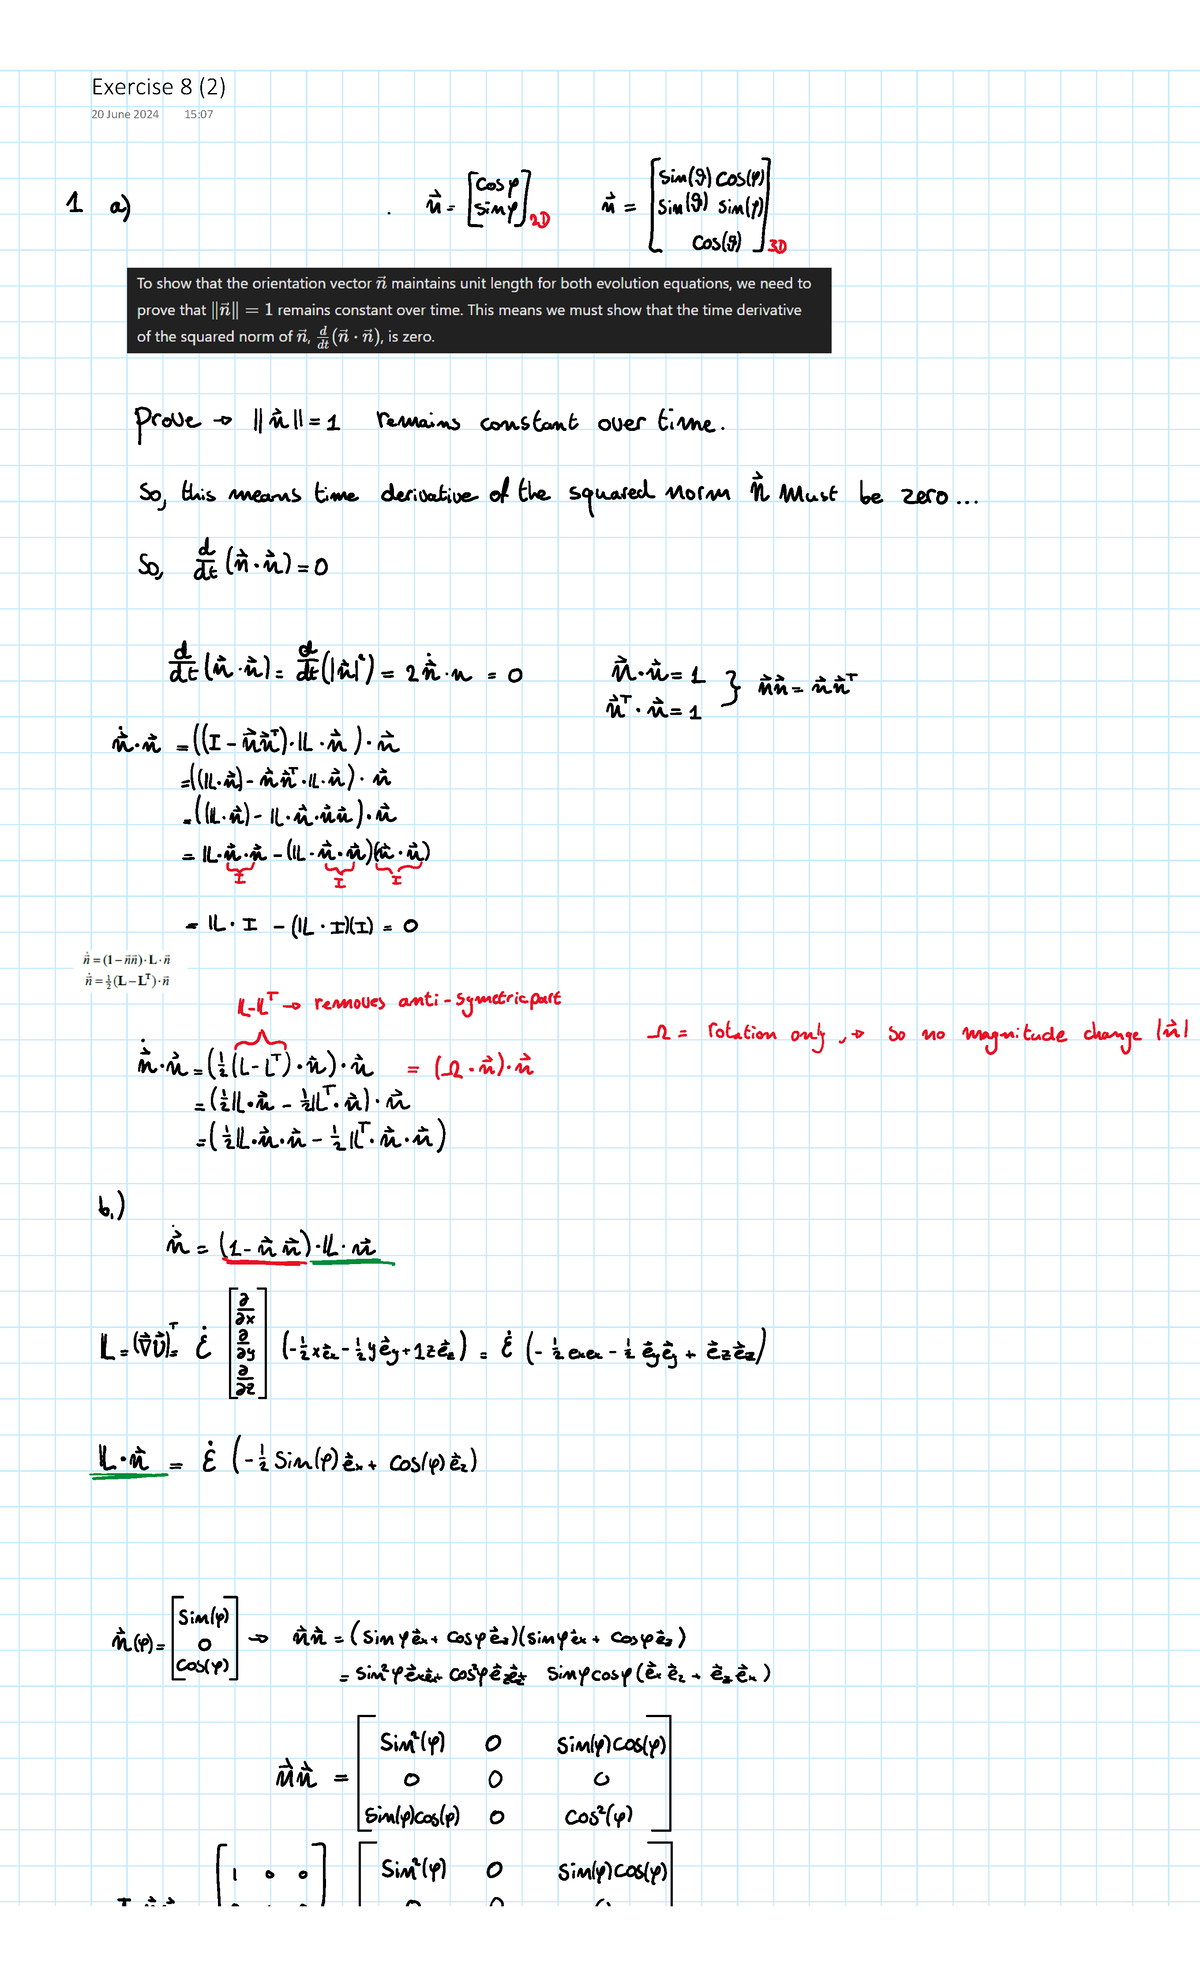 Exercise 8 (2)
20 June 2024 15:07
1 a) . n⃗ = [cosφ sinφ] 2D n⃗ = [sin(ϑ) cos(φ) sin(ϑ) sin(φ) cos(ϑ)] 3D
To show that the orientation vector n⃗ maintains unit length for both evolution equations, we need to
prove that ||n⃗|| = 1 remains constant over time. This means we must show that the time derivative
of the squared norm of n⃗, d/dt (n⃗ · n⃗), is zero.
Prove → ||n⃗|| = 1 remains constant over time.
So, this means time derivative of the squared norm n⃗ must be zero...
So, d/dt (n⃗·n⃗) = 0
d/dt (n⃗·n⃗) = d/dt (|n⃗|²) = 2 n⃗̇·n = 0 n⃗·n⃗ = 1 } n⃗n⃗ = n⃗n⃗ᵀ
n⃗ᵀ·n⃗ = 1
n⃗̇·n⃗ = ((I - n⃗n⃗ᵀ)·L·n⃗)·n⃗
= ((L·n⃗) - n⃗n⃗ᵀ·L·n⃗)·n⃗
= ((L·n⃗) - L·n⃗·n⃗n⃗)·n⃗
= L·n⃗·n⃗ - (L·n⃗·n⃗)(n⃗·n⃗)
I I I
= L·I - (L·I)(I) = 0
n⃗̇ = (1 − n⃗n⃗)·L·n⃗
n⃗̇ = ½(L − Lᵀ)·n⃗
L-Lᵀ → removes anti-symetric part
Ω = rotation only, → so no magnitude change |n⃗|
n⃗̇·n⃗ = (½(L-Lᵀ)·n⃗)·n⃗ = (Ω·n⃗)·n⃗
= (½L·n⃗ - ½Lᵀ·n⃗)·n⃗
= (½L·n⃗·n⃗ - ½Lᵀ·n⃗·n⃗)
b.)
n⃗̇ = (1 - n⃗n⃗)·L·n⃗
L = (∇⃗v⃗)ᵀ = ε̇ [∂/∂x ∂/∂y ∂/∂z] (-½xe⃗x - ½ye⃗y + 1ze⃗z) = ε̇ (-½exex - ½e⃗ye⃗y + e⃗ze⃗z)
L·n⃗ = ε̇ (-½ sin(φ)e⃗x + cos(φ)e⃗z)
n⃗(φ) = [sin(φ) 0 cos(φ)] → n⃗n⃗ = (sinφe⃗x + cosφe⃗z)(sinφe⃗x + cosφe⃗z)
= sin²φe⃗xe⃗x + cos²φe⃗ze⃗z sinφcosφ(e⃗xe⃗z + e⃗ze⃗x)
sin²(φ) 0 sin(φ)cos(φ)
n⃗n⃗ = 0 0 0
sin(φ)cos(φ) 0 cos²(φ)
1 0 0 sin²(φ) 0 sin(φ)cos(φ)